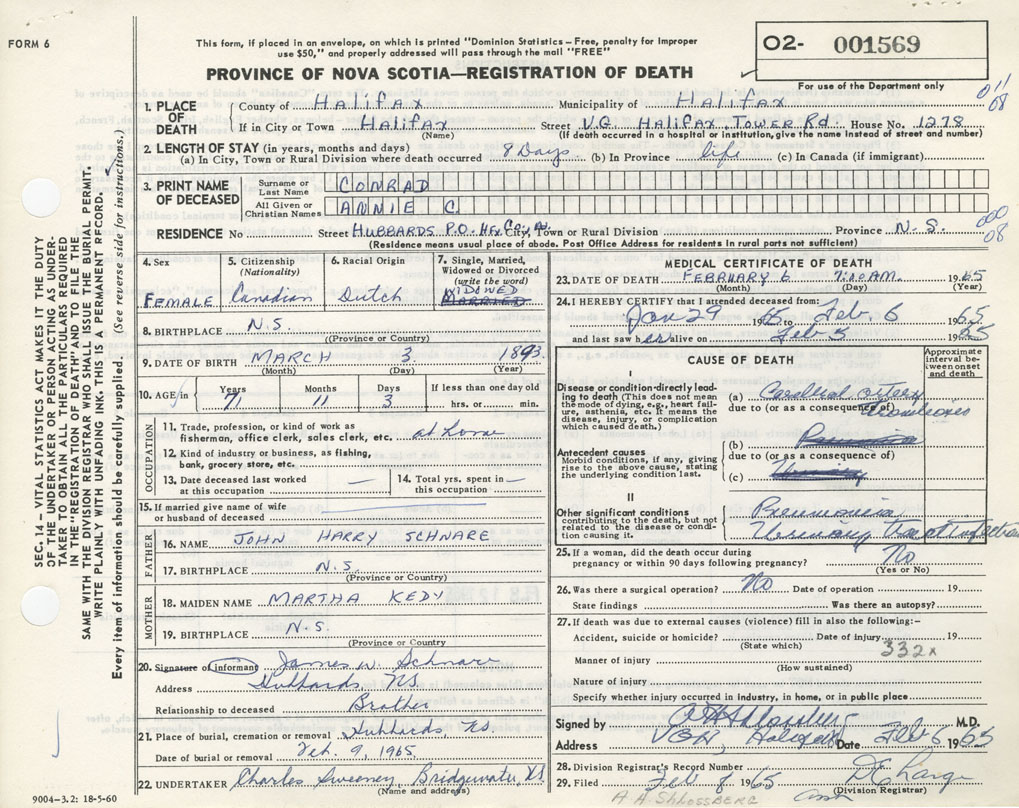 FORM 6
This form, if placed in an envelope, on which is printed "Dominion Statistics—Free, penalty for Improper
use $50," and properly addressed will pass through the mail "FREE"
PROVINCE OF NOVA SCOTIA—REGISTRATION OF DEATH
O2- 001569
For use of the Department only
011
08
1. PLACE OF DEATH
County of Halifax Municipality of Halifax
If in City or Town Halifax Street V.G. Halifax, Tower Rd. House No. 1278
(Name) (If death occurred in a hospital or institution, give the name instead of street and number)
2. LENGTH OF STAY (in years, months and days)
(a) In City, Town or Rural Division where death occurred 8 Days (b) In Province life (c) In Canada (if immigrant)
3. PRINT NAME OF DECEASED
Surname or Last Name CONRAD
All Given or Christian Names ANNIE C.
000
08
RESIDENCE No Street HUBBARDS P.O. Hfx. Co., City, Town or Rural Division Province N.S.
(Residence means usual place of abode. Post Office Address for residents in rural parts not sufficient)
4. Sex
FEMALE
5. Citizenship
(Nationality)
Canadian
6. Racial Origin
Dutch
7. Single, Married,
Widowed or Divorced
(write the word)
WIDOWED
MARRIED
8. BIRTHPLACE N.S.
(Province or County)
9. DATE OF BIRTH MARCH 3 1893
(Month) (Day) (Year)
10. AGE in
Years Months Days If less than one day old
71 11 3 hrs. or min.
OCCUPATION
11. Trade, profession, or kind of work as
fisherman, office clerk, sales clerk, etc. at home
12. Kind of industry or business, as fishing,
bank, grocery store, etc.
13. Date deceased last worked
at this occupation
14. Total yrs. spent in
this occupation
15. If married give name of wife
or husband of deceased
FATHER
16. NAME JOHN HARRY SCHNARE
17. BIRTHPLACE N.S.
(Province or Country)
MOTHER
18. MAIDEN NAME MARTHA KEDY
19. BIRTHPLACE N.S.
(Province or Country)
20. Signature of informant James W. Schnare
Address Hubbards, N.S.
Relationship to deceased Brother
21. Place of burial, cremation or removal Hubbards, N.S.
Date of burial or removal Feb. 9, 1965
22. UNDERTAKER Charles Sweeney, Bridgewater, N.S.
(Name and address)
MEDICAL CERTIFICATE OF DEATH
23. DATE OF DEATH FEBRUARY 6 7:10 AM. 1965
(Month) (Day) (Year)
24. I HEREBY CERTIFY that I attended deceased from:
Jan 29 1965 to Feb. 6 1965
and last saw her alive on Feb 5 1965
CAUSE OF DEATH
Approximate
interval be-
tween onset
and death
I
Disease or condition-directly lead-
ing to death (This does not mean
the mode of dying, e.g., heart fail-
ure, asthenia, etc. It means the
disease, injury, or complication
which caused death.)
(a) Cerebral artery thrombosis
due to (or as a consequence of)
Antecedent causes
Morbid conditions, if any, giving
rise to the above cause, stating
the underlying condition last.
(b) Pneumonia
due to (or as a consequence of)
(c) Urinary
II
Other significant conditions
contributing to the death, but not
related to the disease or condi-
tion causing it.
Pneumonia
Urinary Tract Infection
25. If a woman, did the death occur during
pregnancy or within 90 days following pregnancy? No
(Yes or No)
26. Was there a surgical operation? No Date of operation 19
State findings Was there an autopsy?
27. If death was due to external causes (violence) fill in also the following:—
Accident, suicide or homicide? Date of injury 19
(State which) 332x
Manner of injury
(How sustained)
Nature of injury
Specify whether injury occurred in industry, in home, or in public place
Signed by M.D.
Address VGH, Halifax Date Feb 6 1965
28. Division Registrar's Record Number
29. Filed Feb 8 1965
(Division Registrar)
A. A. SHLOSSBERG
9004-3.2: 18-5-60
SEC. 14 – VITAL STATISTICS ACT MAKES IT THE DUTY
OF THE UNDERTAKER OR PERSON ACTING AS UNDER-
TAKER TO OBTAIN ALL THE PARTICULARS REQUIRED
IN THE "REGISTRATION OF DEATH" AND TO FILE THE
SAME WITH THE DIVISION REGISTRAR WHO SHALL ISSUE THE BURIAL PERMIT.
WRITE PLAINLY WITH UNFADING INK. THIS IS A PERMANENT RECORD.
Every item of information should be carefully supplied. (See reverse side for instructions.)